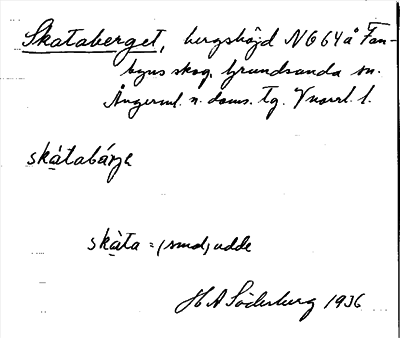 Skataberget, bergshöjd NO 64 å Fan-
byns skog, Grundsunda sn.
Ångerml. n. doms. tg. Vnorrl. l.
skàtabárjə
skàta = (smal) udde
H A Söderberg 1936